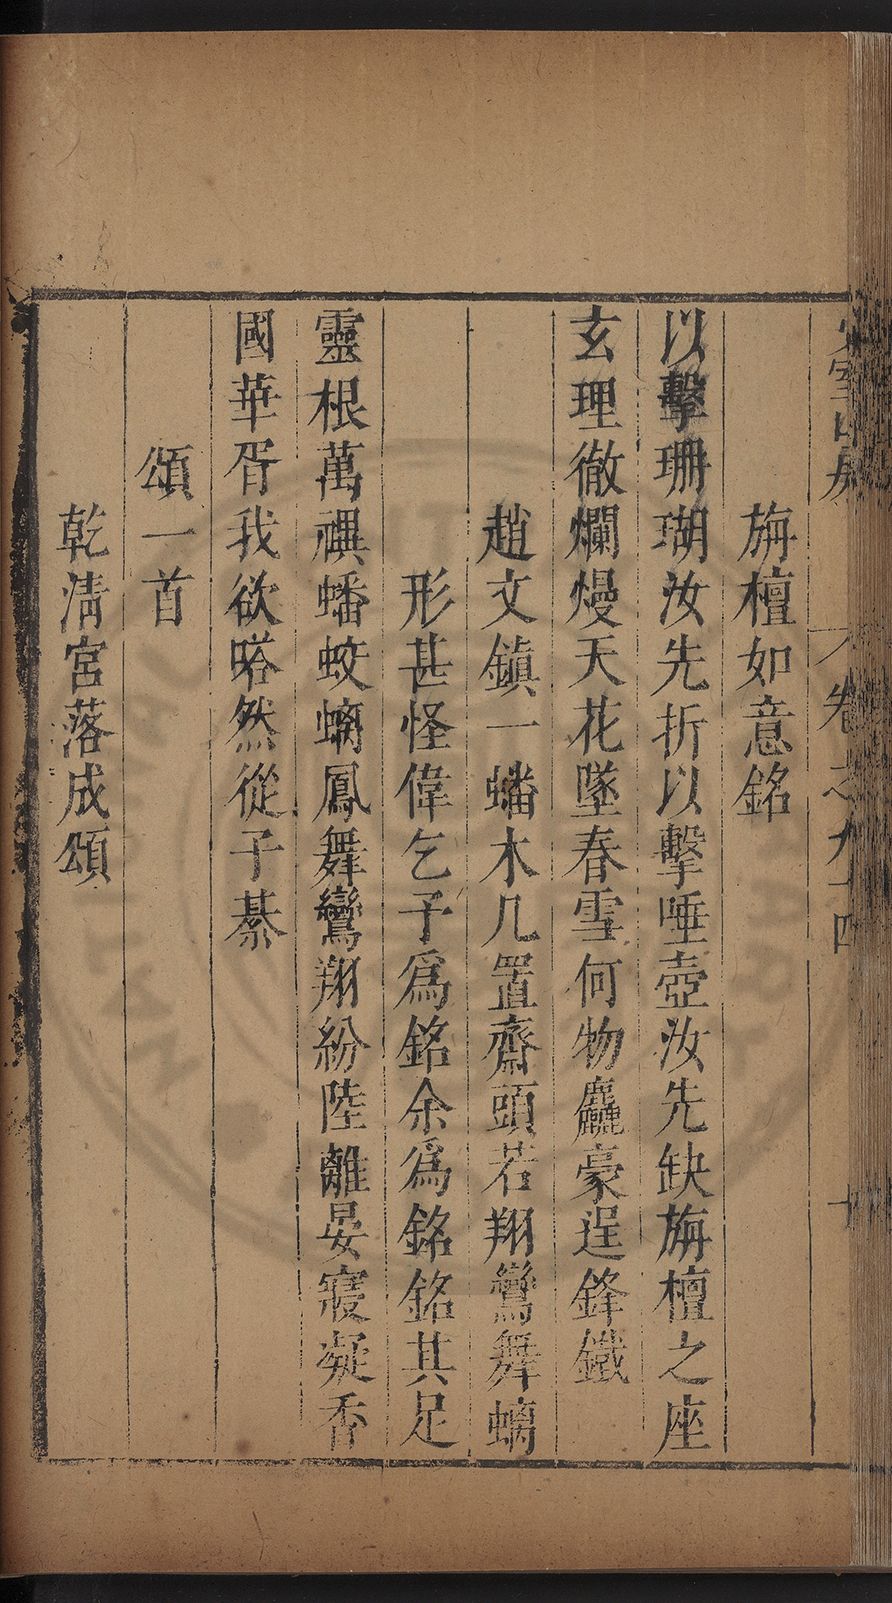 卷之九十四
十
旃檀如意銘
以擊珊瑚汝先折以擊唾壺汝先缺旃檀之座
玄理徹爛熳天花墜春雪何物麤豪逞鋒鐵
趙文鎮一蟠木几置齋頭若翔鸞舞螭
形甚怪偉乞予爲銘余爲銘銘其足
靈根萬禩蟠蛟螭鳳舞鸞翔紛陸離晏寢凝香
國華胥我欲嗒然從子綦
頌一首
乾淸宮落成頌